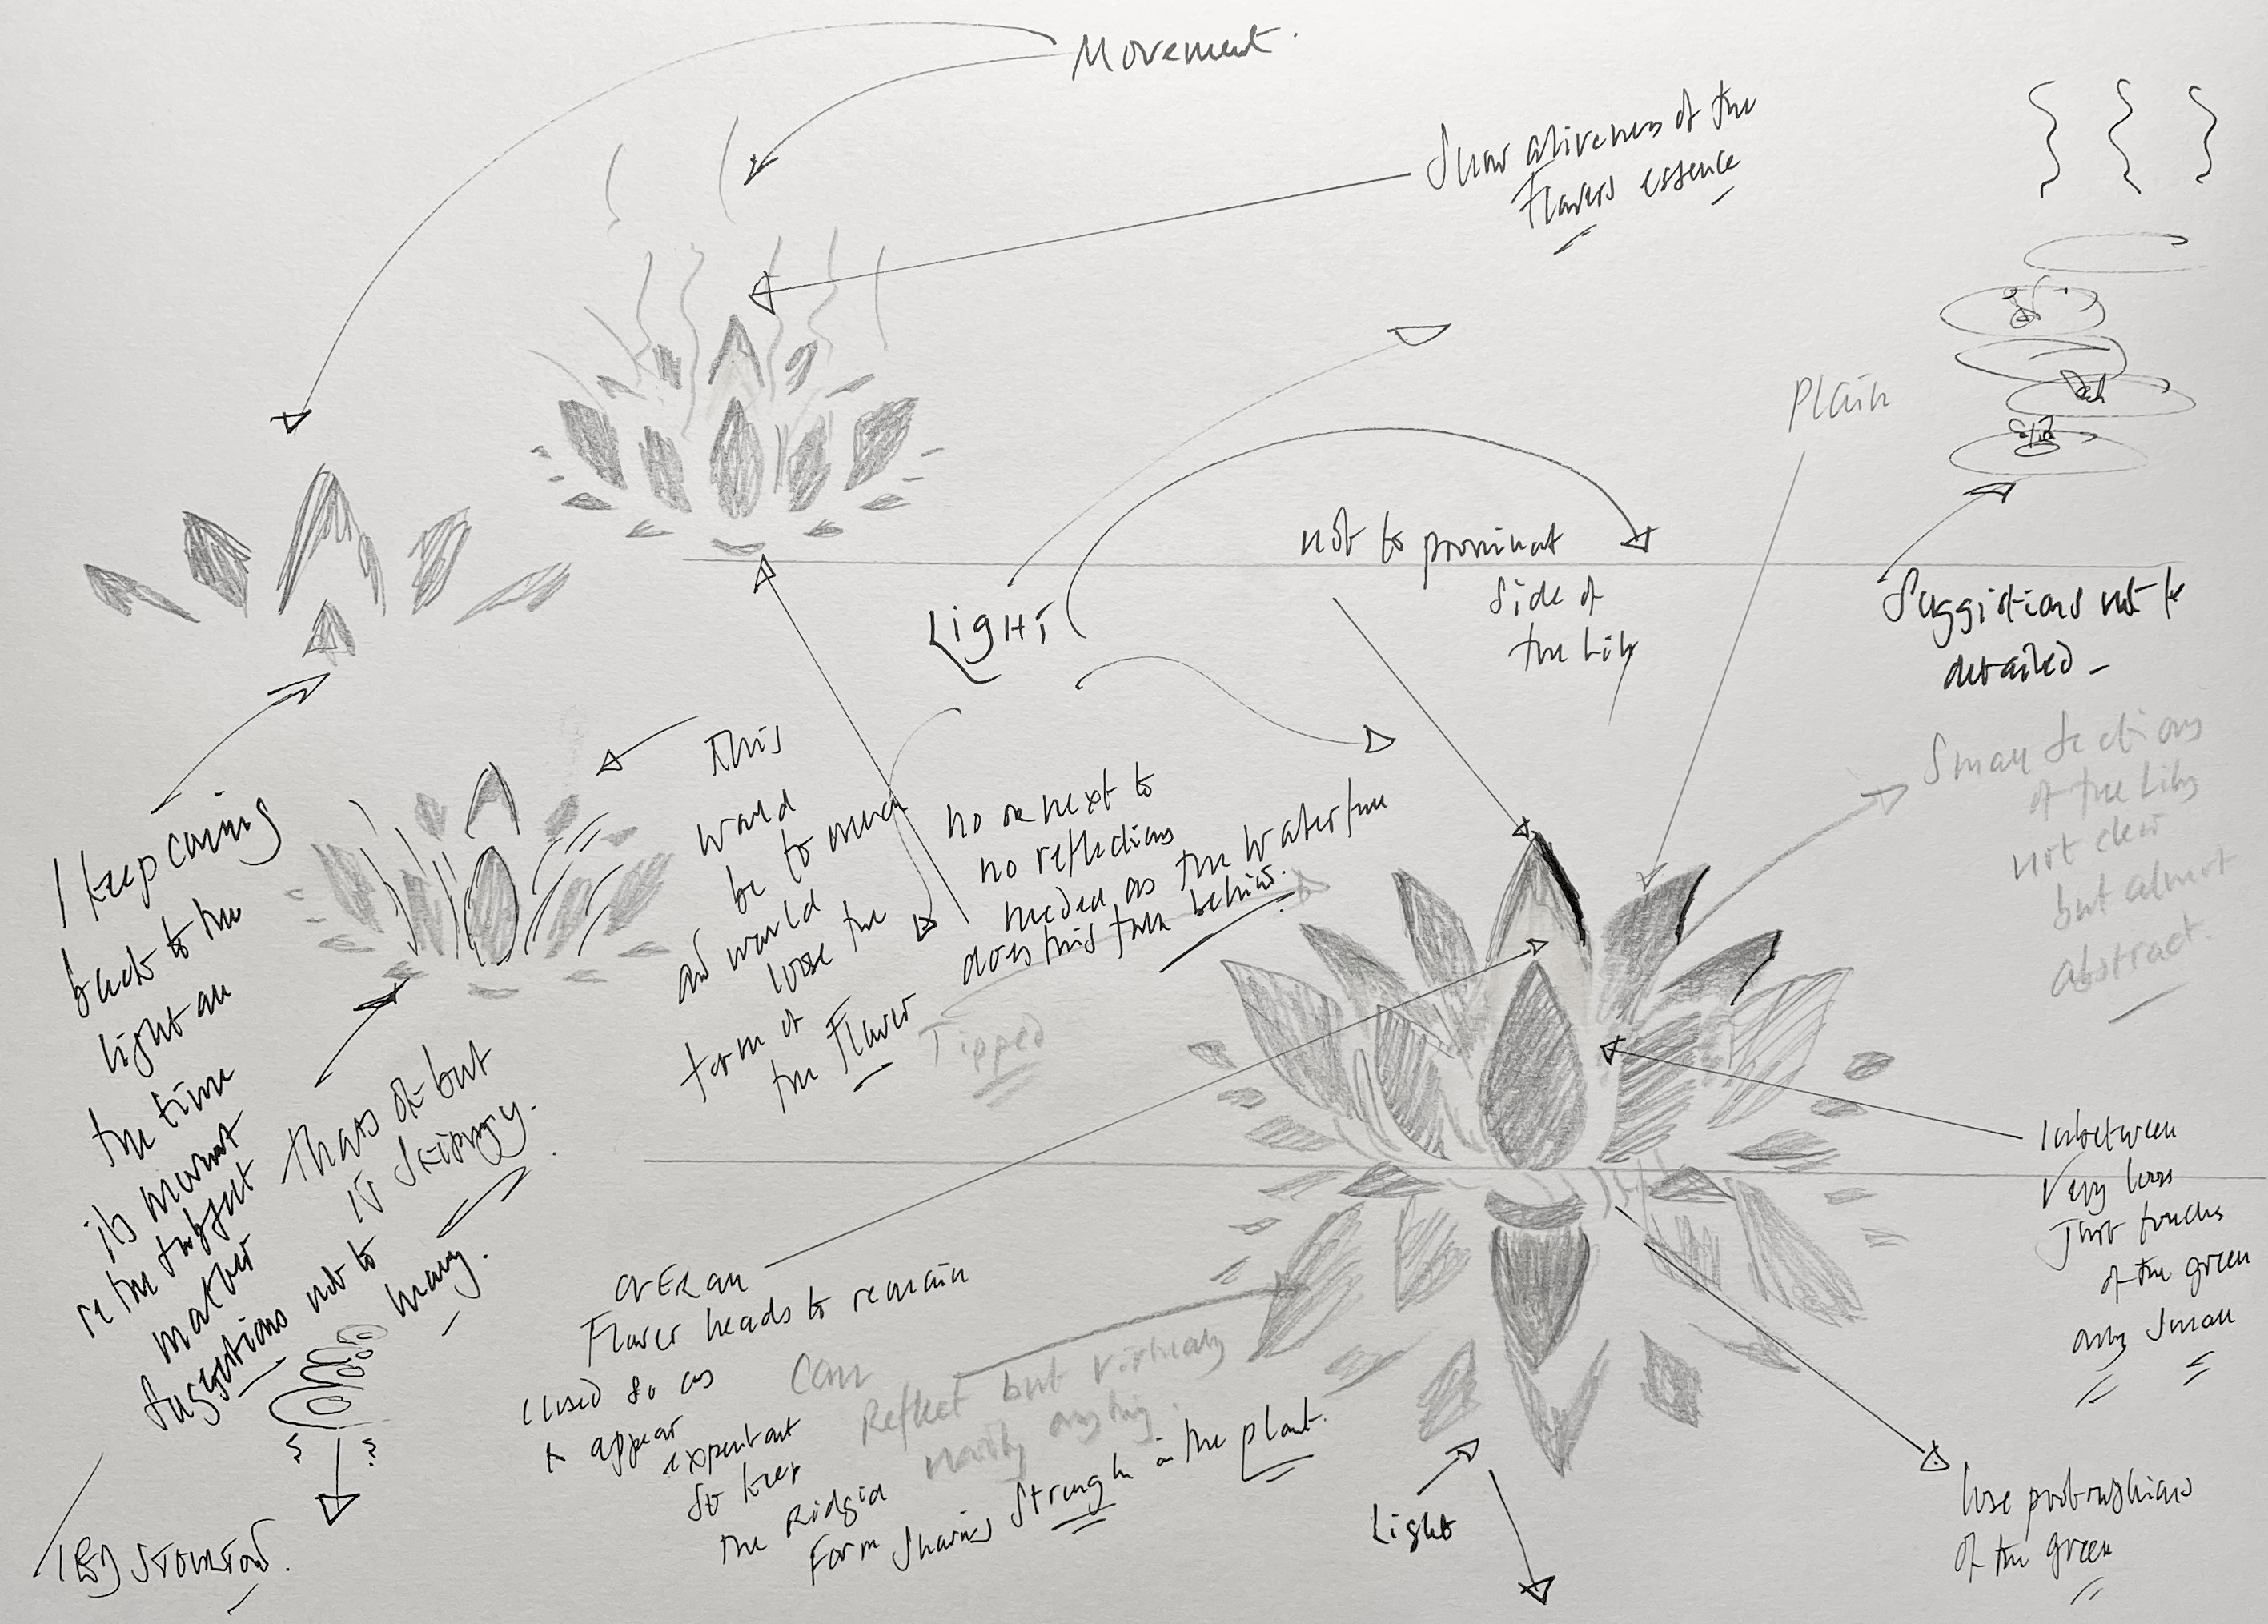 Movement.
Show aliveness of the
Flowers essence
Plain
Light
not to prominat
Side of
the Lily
Suggistions not to
detailed -
Small Sections
of the Lily
not clear
but almost
abstract.
This
would
be to much
and would
loose the
form of
the Flower
no or next to
no reflections
needed as the water fur
does this further behind.
Tipped
I keep coming
back to the
light all
the time
its movement
the subject
matter
Suggestions not to
many.
thats ok but
is skippy.
Inbetween
Very loose
Just touches
of the green
only Small
OVERall
Flower heads to remain
closed so as
to appear
expectant
So keep
the Ridgid
Form Sharing Strength in the plant.
Can
Reflect but virtually
hardly anything.
Light
lose
of the green